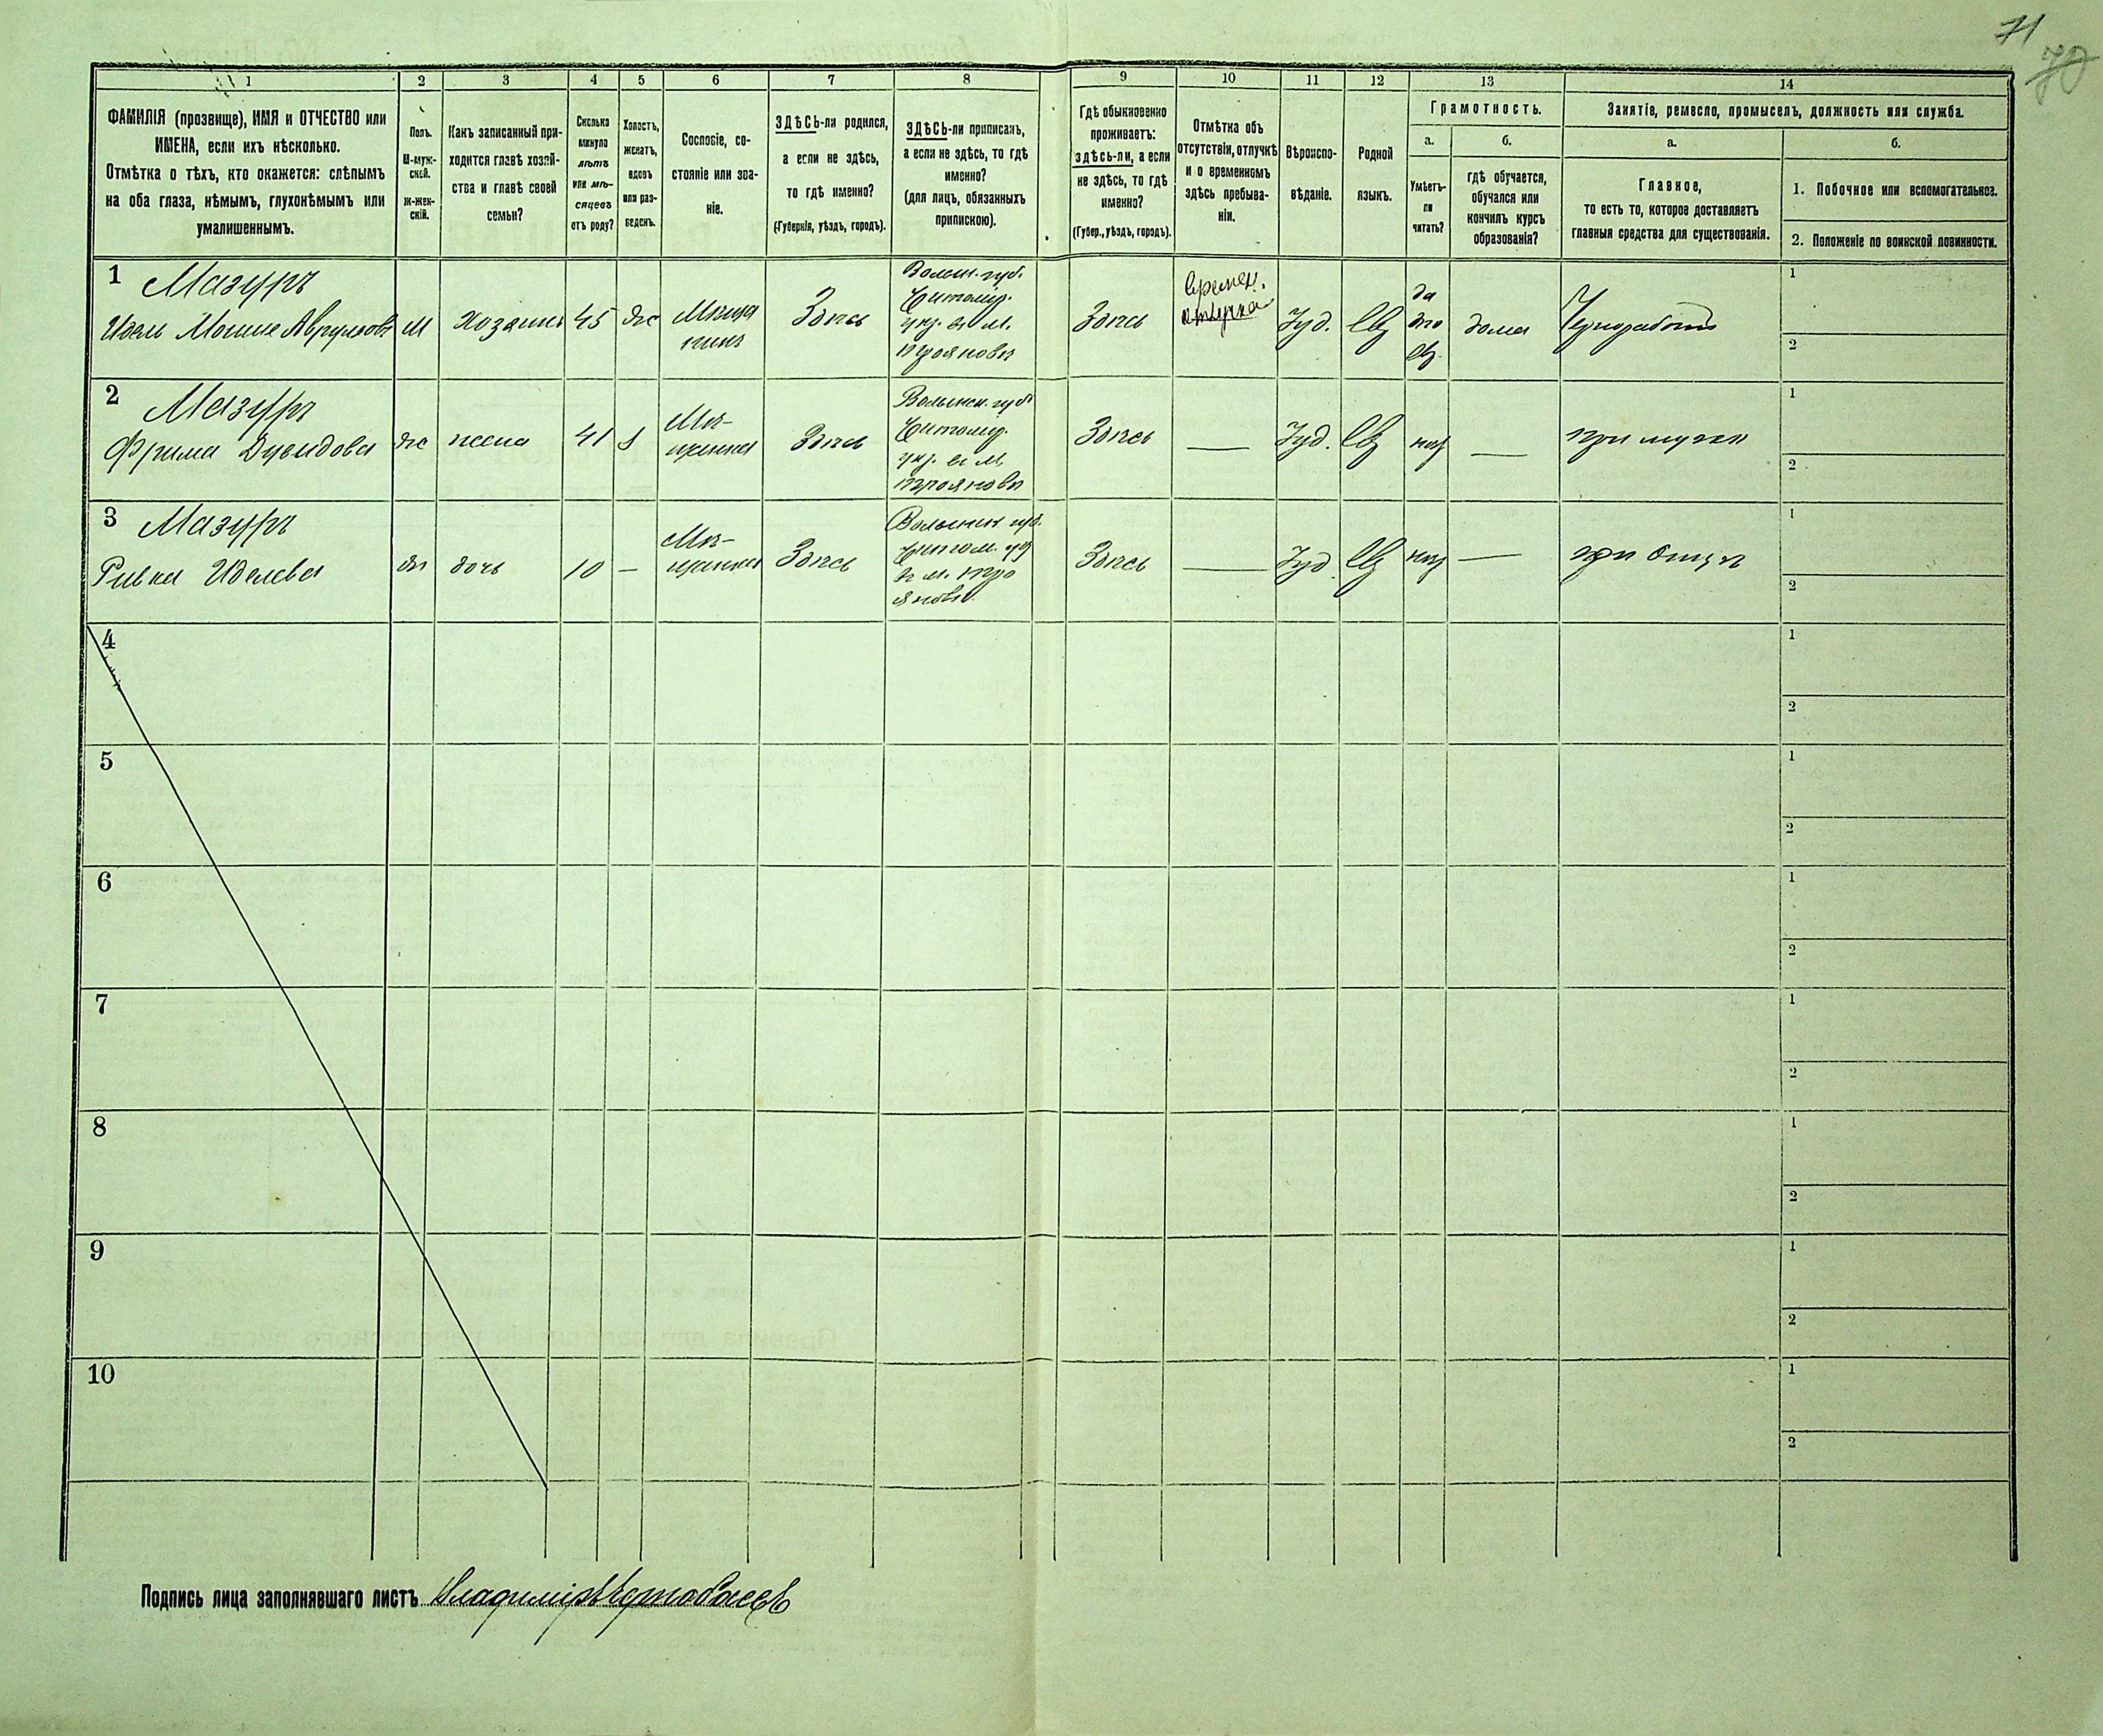 71
70
1
ФАМИЛІЯ (прозвище), ИМЯ и ОТЧЕСТВО или
ИМЕНА, если ихъ нѣсколько.
Отмѣтка о тѣхъ, кто окажется: слѣпымъ
на оба глаза, нѣмымъ, глухонѣмымъ или
умалишеннымъ.
2
Полъ.
М-муж-
ской.
Ж-жен-
скій.
3
Какъ записанный при-
ходится главѣ хозяй-
ства и главѣ своей
семьи?
4
Сколько
минуло
лѣтъ
или мѣ-
сяцевъ
отъ роду?
5
Холостъ,
женатъ,
вдовъ
или раз-
веденъ.
6
Сословіе, со-
стояніе или зва-
ніе.
7
ЗДѢСЬ-ли родился,
а если не здѣсь,
то гдѣ именно?
(Губернія, уѣздъ, городъ).
8
ЗДѢСЬ-ли приписанъ,
а если не здѣсь, то гдѣ
именно?
(для лицъ, обязанныхъ
припискою).
9
Гдѣ обыкновенно
проживаетъ:
здѣсь-ли, а если
не здѣсь, то гдѣ
именно?
(Губер., уѣздъ, городъ).
10
Отмѣтка объ
отсутствіи, отлучкѣ
и о временномъ
здѣсь пребыва-
ніи.
11
Вѣроиспо-
вѣданіе.
12
Родной
языкъ.
13
Грамотность.
а.
Умѣетъ-
ли
читать?
б.
гдѣ обучается,
обучался или
кончилъ курсъ
образованія?
14
Занятіе, ремесло, промыселъ, должность или служба.
а.
Главное,
то есть то, которое доставляетъ
главныя средства для существованія.
б.
1. Побочное или вспомогательное.
2. Положеніе по воинской повинности.
1
Мазуръ
Идель Мошке Аврумовъ
М
Хозяинъ
45
Же
Мѣща
нинъ
Здѣсь
Волын. губ.
Житомір.
уѣз. въ м.
Трояновѣ
Здѣсь
времен.
отлучка
Іуд.
Ев
да
по
ев.
дома
Чернорабочій
1
2
2
Мазуръ
Фрима Дувидова
же
жена
41
Мѣ-
щанка
Здѣсь
Волынск. губ
Житомір.
уѣз. въ м.
Трояновѣ
Здѣсь
—
Іуд.
Ев
нѣт
—
при мужѣ
1
2
3
Мазуръ
Ривка Иделева
же
дочь
10
—
Мѣ-
щанка
Здѣсь
Волынск. губ.
Житом. уѣз
въ м. Тро
яновѣ
Здѣсь
—
Іуд.
Ев
нѣт
—
при Отцѣ
1
2
4
1
2
5
1
2
6
1
2
7
1
2
8
1
2
9
1
2
10
1
2
Подпись лица заполнявшаго листъ Владиміръ